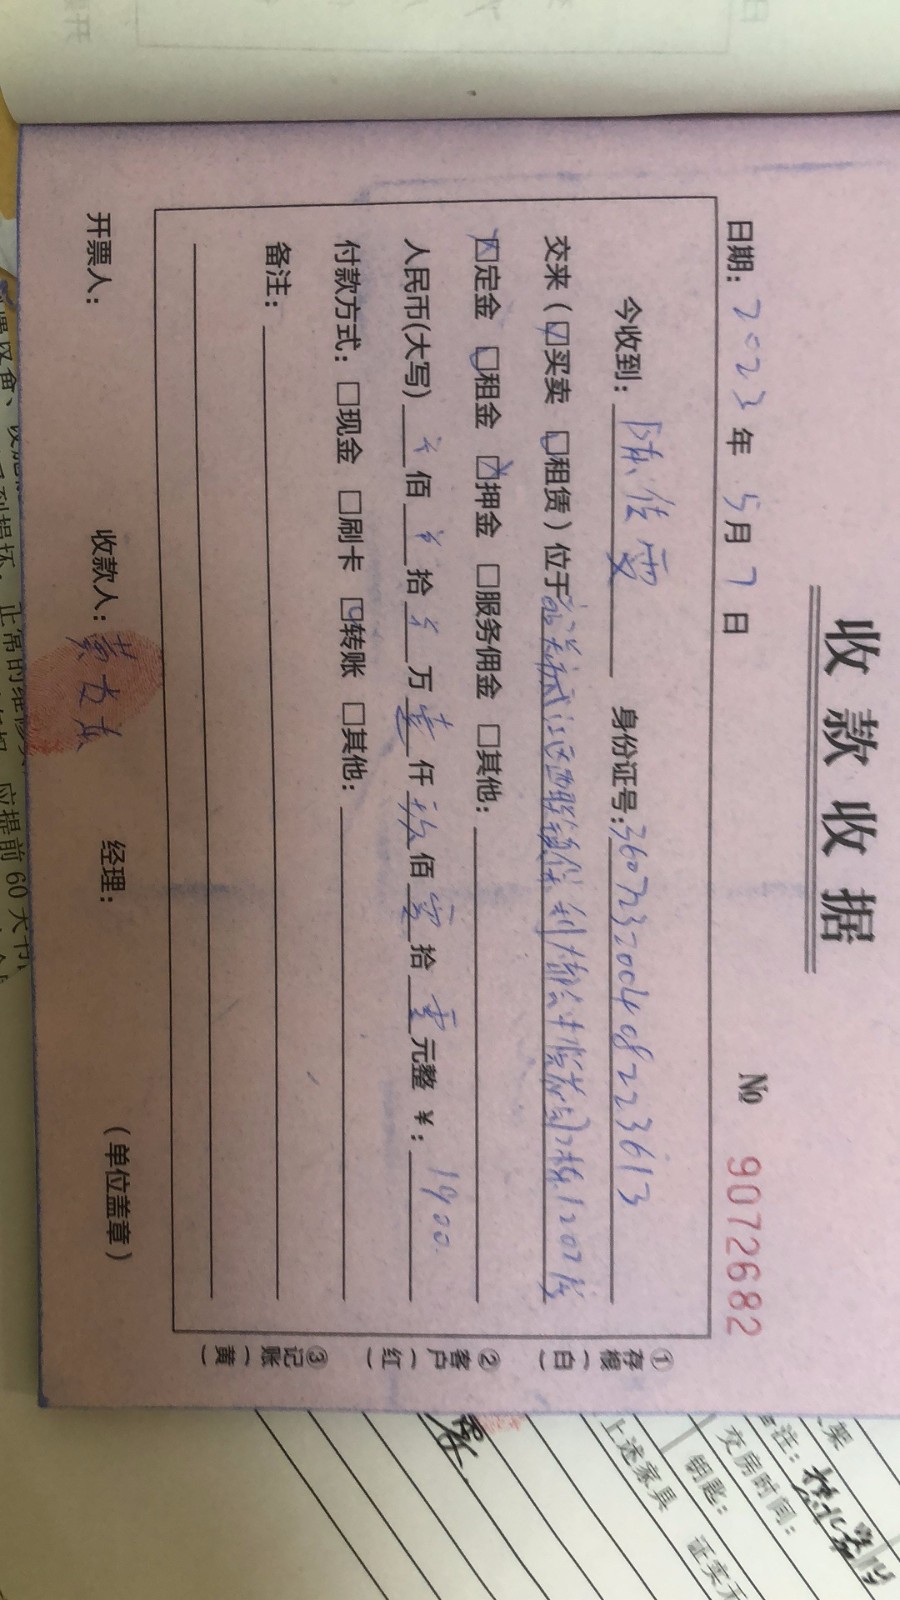 收款收据
№ 9072682
日期: 2023 年 5 月 7 日
今收到: 陈佳雯 身份证号: 360723200408223613
交来 ( ☑买卖 ☑租赁 ) 位于 武江区西联镇保利 1207房
☑定金 ☑租金 ☑押金 □服务佣金 □其他:
人民币(大写) ¥ 佰 ¥ 拾 ¥ 万 壹 仟 玖 佰 零 拾 零 元整 ¥: 1900.
付款方式: □现金 □刷卡 ☑转账 □其他:
备注:
开票人: 收款人: 黄 经理: (单位盖章)
①存根(白) ②客户(红) ③记账(黄)
应提前60天书
上述家具
钥匙:
交房时间: